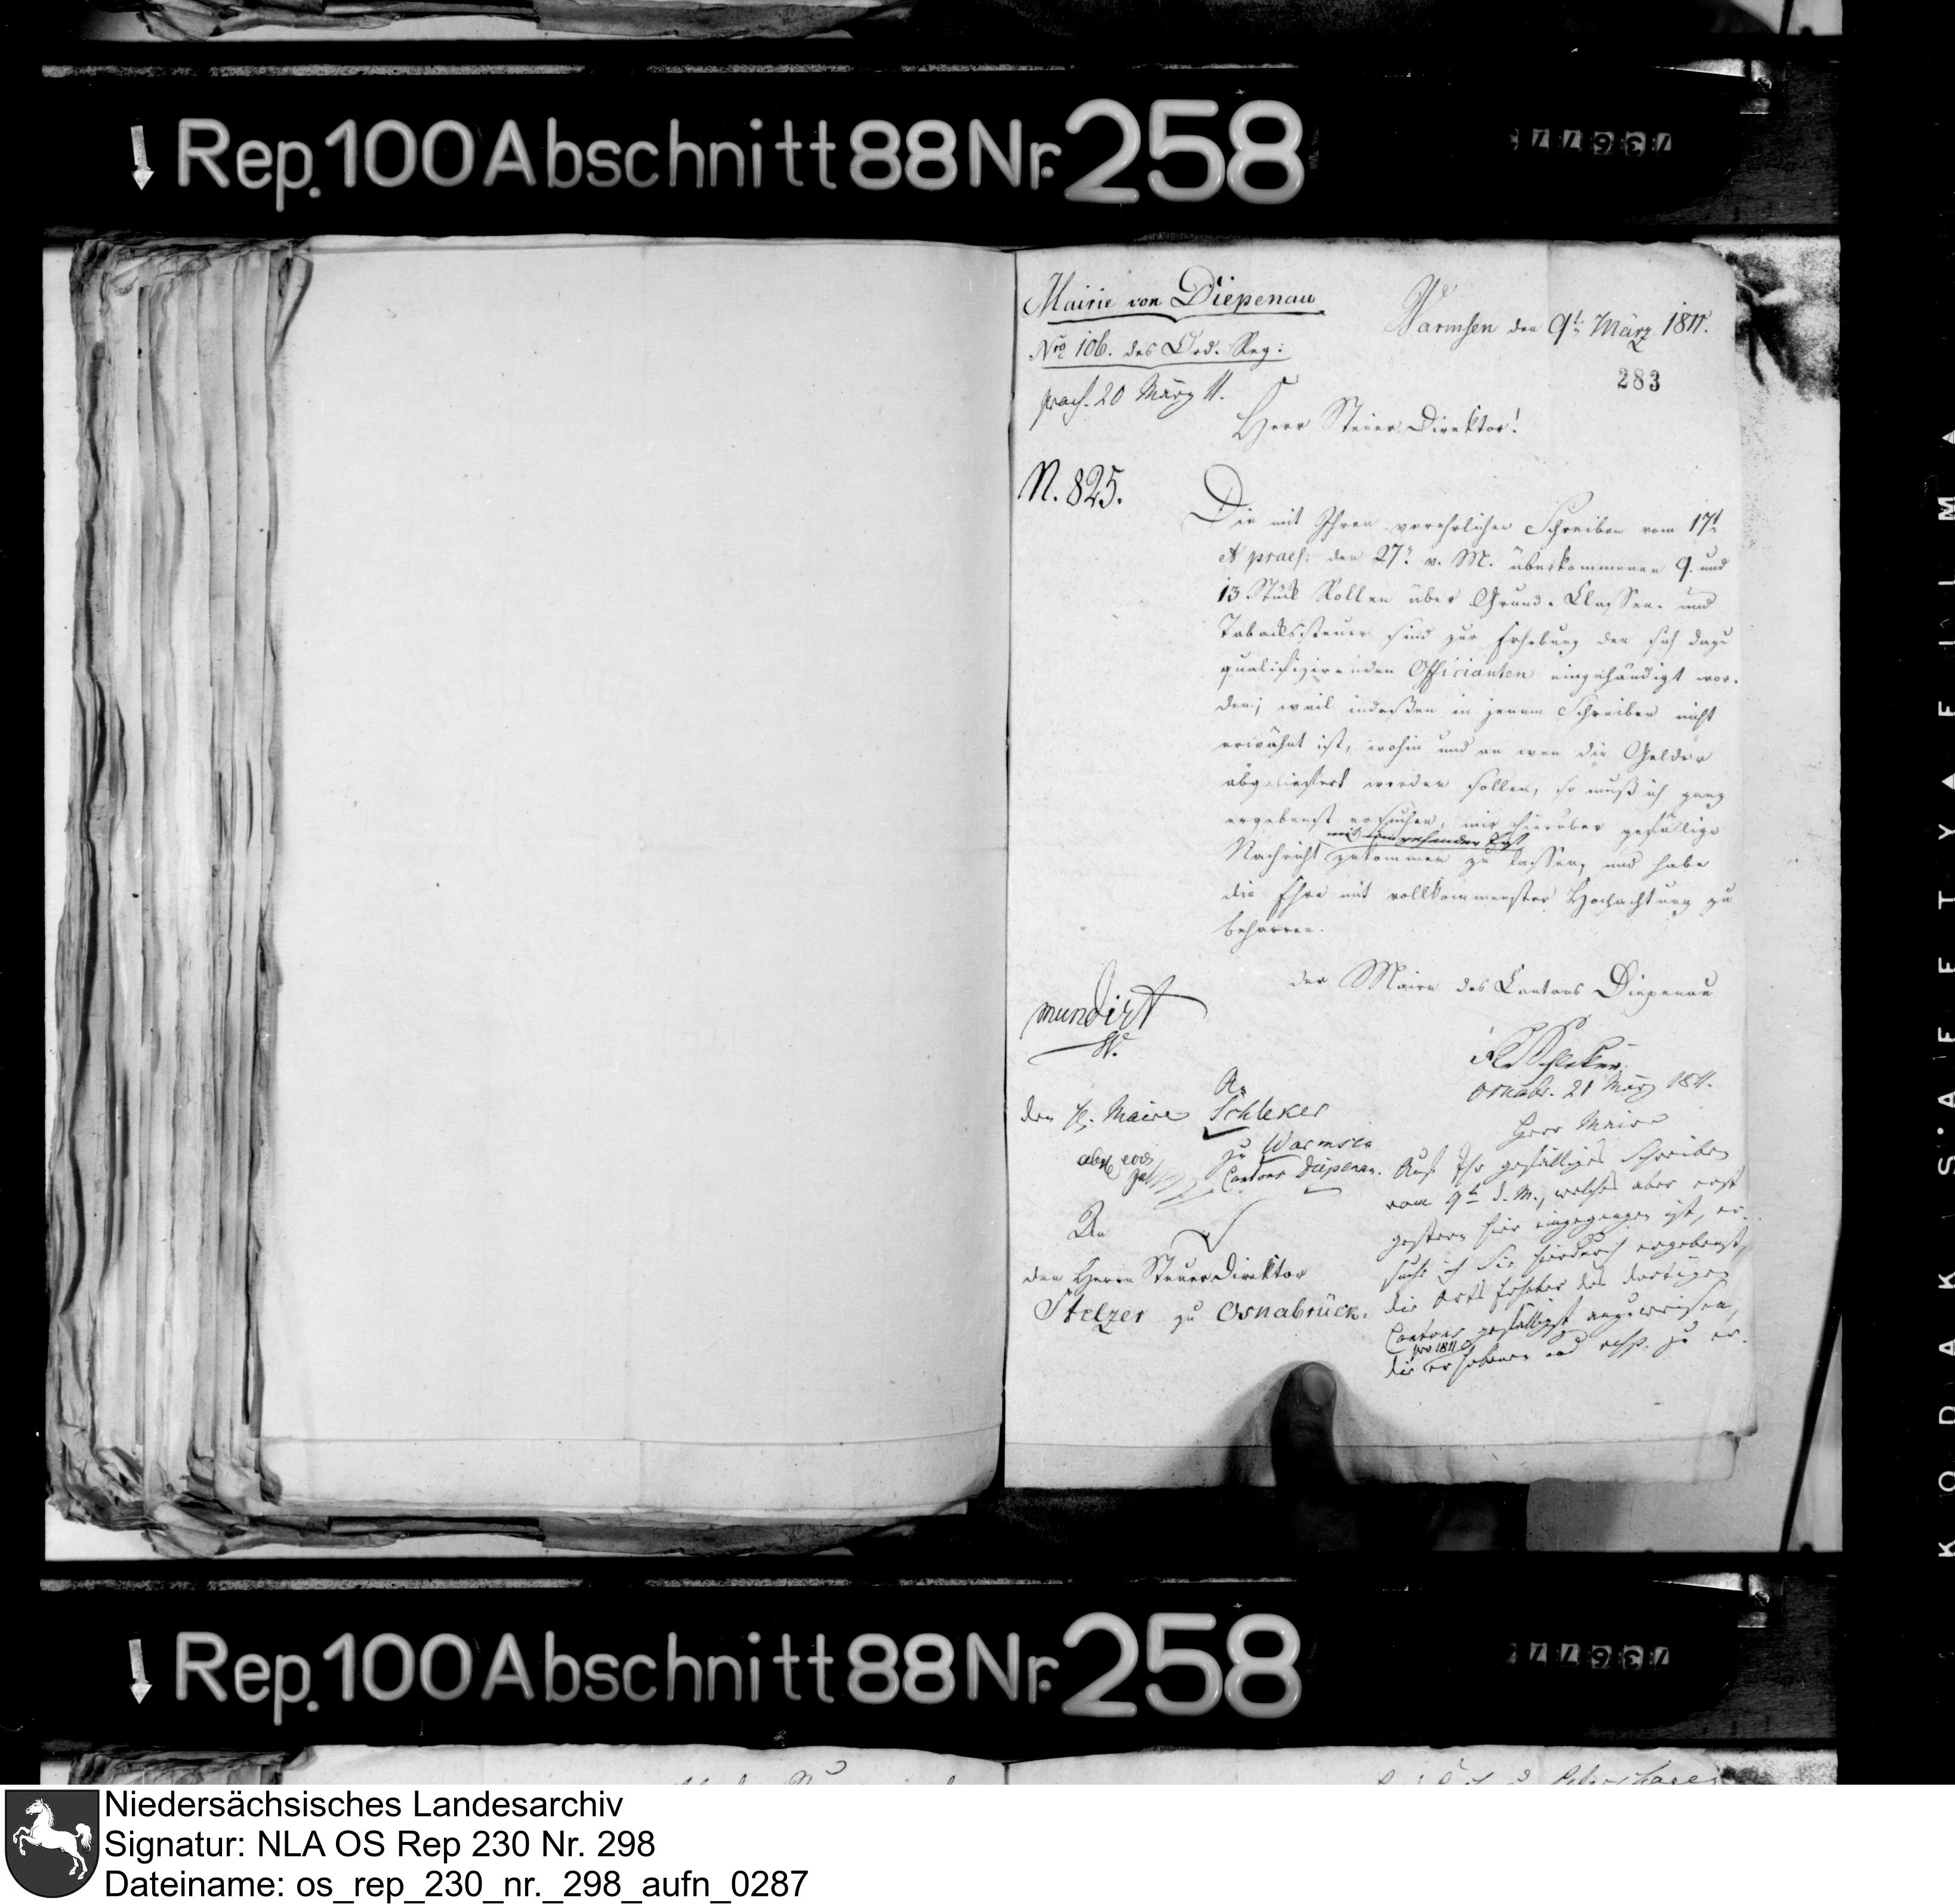 Rep. 100 Abschnitt 88 Nr. 258
Mairie von Diepenau
Nro 106. des Ord. Reg:
Warmsen den 9t. März 1811.
283
praes. 20 März 11.
Herr Steuer Direktor!
N. 825.
Die mit Ihren verehrlichen Schreiben vom 17t
et praes: den 27t. v. M. überkommenen 9. und
13 Stück Rollen über Grund- Classen- und
Tabackssteuer sind zur Erhebung den sich dazu
qualifizirenden Officianten eingehändigt wor-
den; weil indeßen in jenem Schreiben nicht
erwähnt ist, wohin und an wen die Gelder
abgeliefert werden sollen, so muß ich ganz
ergebenst ersuchen, mir hierüber gefällige
mit umgehender Post
Nachricht zukommen zu lassen, und habe
die Ehre mit vollkommenster Hochachtung zu
beharren.
der Maire des Cantons Diepenau
Schleker
mundirt
W.
An
den H. Maire Schleker
zu Warmsen
Cantons Diepenau.
An
den Herrn Steuer Direktor
Stelzer zu Osnabrück.
Osnabr. 21 März 1811.
Herr Maire
Auf Ihr gefälliges Schreiben
vom 9t d. M., welches aber erst
gestern hier eingegangen ist, er-
suche ich Sie hierdurch ergebenst,
die Orts Erheber des dortigen
Cantons gefälligst anzuweisen,
pro 1811
die erhobenen und resp. zu er-
Rep. 100 Abschnitt 88 Nr. 258
KODAK SAFETY FILM
Niedersächsisches Landesarchiv
Signatur: NLA OS Rep 230 Nr. 298
Dateiname: os_rep_230_nr._298_aufn_0287